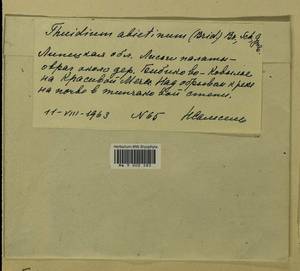 Thuidium abietinum (Brid.) Br., Sch. g
Липецкая обл. Лысые палаты-
овраг около дер. Бибиково-
на Красивой Мечи. Над обрывом к реке
на почве в типчаковой степи.
11-VIII-1963 N 65
Herbarium MW, Bryophyta